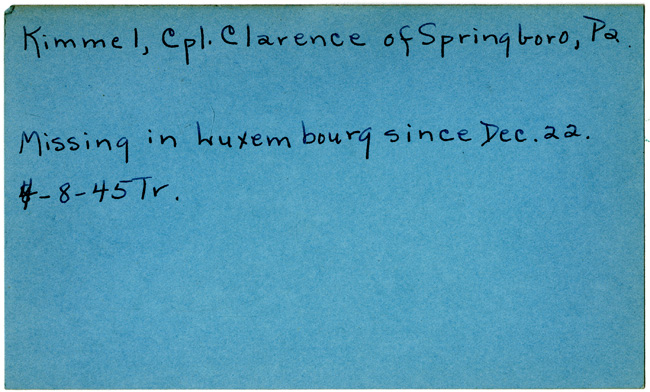 Kimmel, Cpl. Clarence of Springboro, Pa.
Missing in Luxembourg since Dec. 22.
-8-45 Tr.